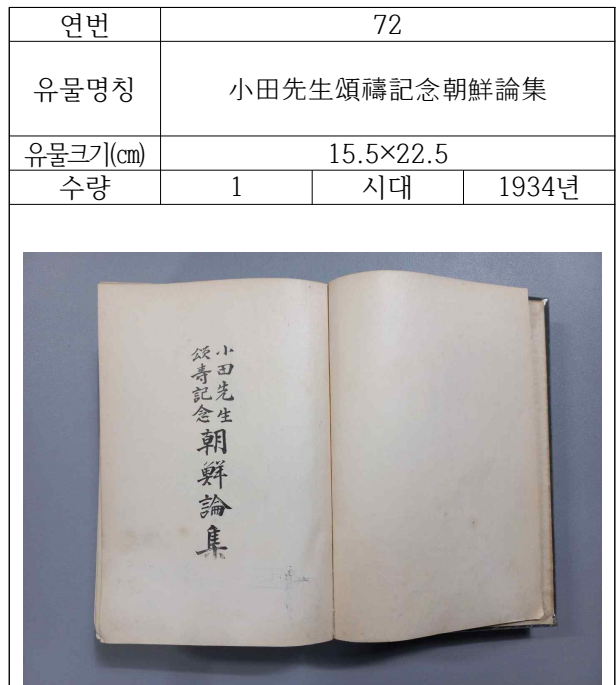 연번 72
유물명칭 小田先生頌禱記念朝鮮論集
유물크기(㎝) 15.5×22.5
수량 1 시대 1934년
小田先生
頌壽記念
朝鮮論集